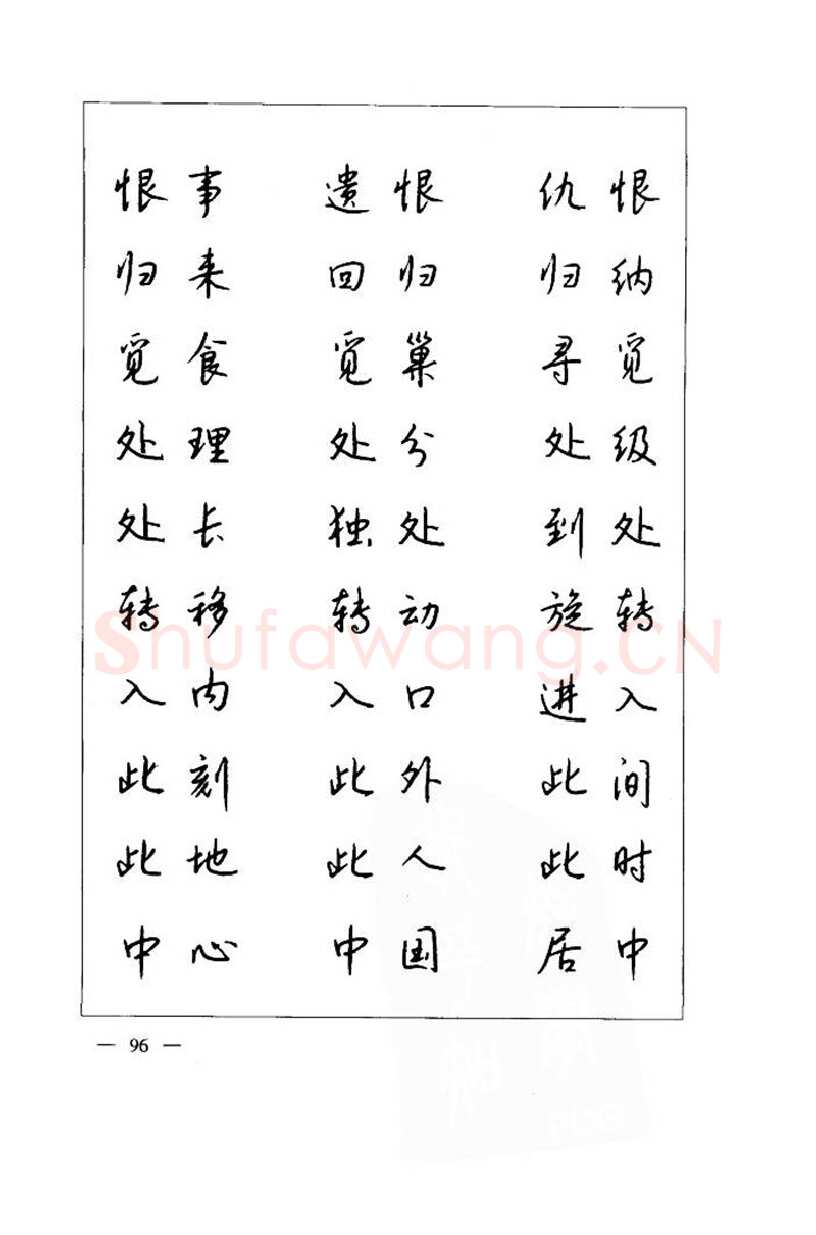 恨事 遗恨 仇恨
归来 回归 归纳
觅食 觅巢 寻觅
处理 处分 处级
处长 独处 到处
转移 转动 旋转
入内 入口 进入
此刻 此外 此间
此地 此人 此时
中心 中国 居中
Shufawang.CN
— 96 —